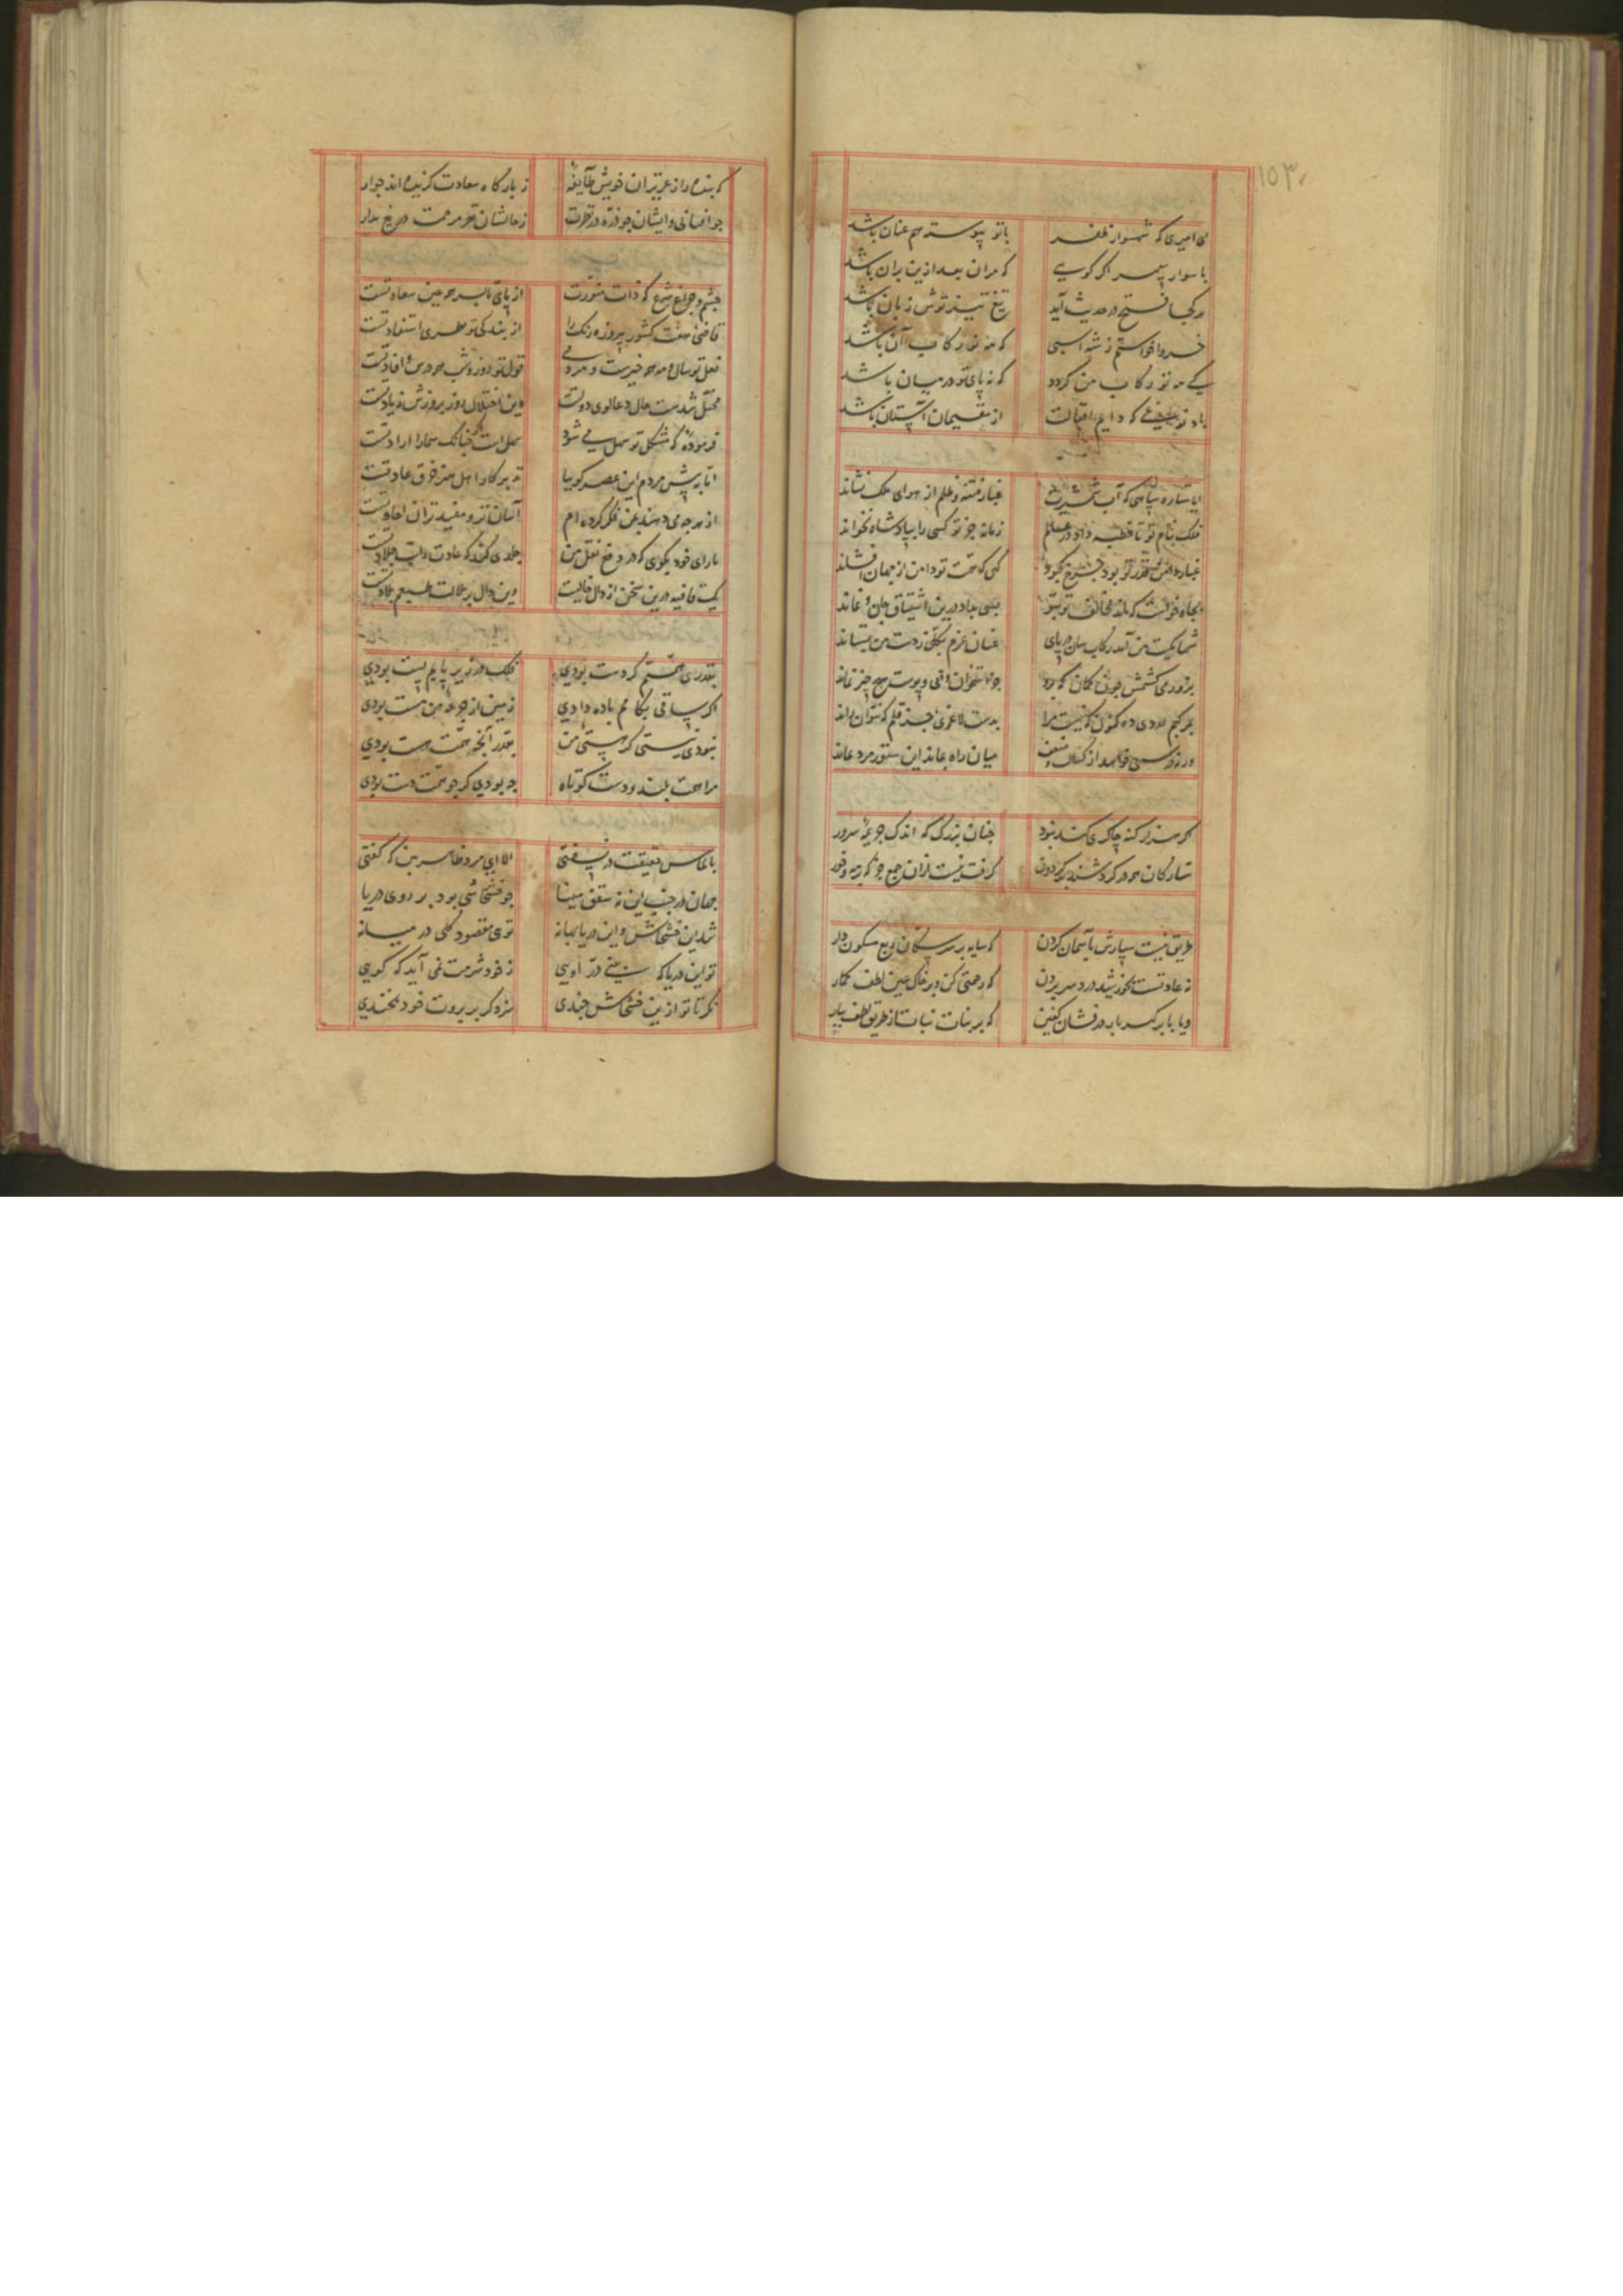 ۱۵۳
ای امیری که شهسوار ظفر باتو پیوسته هم عنان باشد
با سوار سپهر اگر کویی که مران بعد ازین بران باشد
هر کجا فتح در حدیث آید تیغ تیز توش زبان باشد
خسروا خواستم ز شه اسبی که مه نو رکاب آن باشد
کی مه نو رکاب من کردد که نه پای تو در میان باشد
باد که دایم اقبالت از مقیمان آستان باشد
ایا ستاره سپاهی که آب شمشیرت غبار فتنه و ظلم از هوای ملک نشاند
فلک بنام تو تا خطبه داد در عالم زمانه جز تو کسی را بپادشاه نخواند
غبار دامن قدر تو بود چرخ کبود کهی که همت تو دامن از جهان افشاند
بجاه خواست که ماند مخالف تو بتو بسی بداد درین اشتیاق جان و نماند
شها کمیت من آمد رکاب سان در پای عنان عزم بکلی ز دست من بستاند
بزور می کشمش چون کمان که برو جز استخوان و پی و پوست هیچ چیز نماند
بدست لاغری جز قلم که نتوان راند
میان راه بماند این ستور مرد بماند
چنان بزرک که اندک جریمه سرور
ستارکان همه در کردشند بر کردون کرفت نیست ازان جمع جز که بر مه و خور
طریق نیست سپارش بآسمان کردن که سایه بر سر سکان ربع مسکون دار
نه عادتست بخورشید درد سر بردن که رحمتی کن و بر خاک عین لطف کمار
و یا بابر کهربار درفشان کفتن که بر بنات نبات از طریق لطف ببار
که بنده را ز عزیزان خویش طایفهٔ ز بارگاه سعادت گزیده اند جوار
جو آفتابی و ایشان جو ذره در نظرت ز حالشان نظر مرحمت دریغ مدار
چشم و چراغ شرع که ذات منورت از پای تا بسر همه عین سعادتست
قاضی هفت کشور پیروزه رنک را از بندکی تو نظری استفادتست
فعل تو سال و مه همه خیرست و مردمی قول تو روز و شب همه درس و افادتست
مختل شدست حال دعاکوی دولتت وین اختلال روز بروزش زیادتست
فرموده که مشکل تو سهل می شود سهل است جنانک شما را ارادتست
اما به پیش مردم این عصر کوییا تدبیر کار اهل هنر خرق عادتست
از هرچه می دهند من فکر کرده ام آسان تر و مفیدتر آن اعادتست
با رای خود بکوی که در دفع نقل من جلدی کند که عادت
یک قافیه درین سخن از دال خالیست وین دال بر ملالت طبعم بلادتست
بقدر همتم کر دست بودی فلک در زیر پایم پست بودی
اگر ساقی بکامم باده دادی زمین از جرعهٔ من مست بودی
نبودی نیستی کر هستی من بقدر آنچه همت هست بودی
مرا همت بلند و دست کوتاه چه بودی کر چو همت دست بودی
الا ای مرد ظاهر بین که کفتی بالماس حقیقت در نسفتی
جهان در جنب این نه سقف مینا جو خشخاشی بود بر روی دریا
شد این خشخاش و این دریا بهانه توی مقصود کلی در میانه
تو این دریا که بینی در اویی ز خود شرمت نمی آید که کویی
نکر تا تو ازین خشخاش جندی سزد کر بر بروت خود بخندی